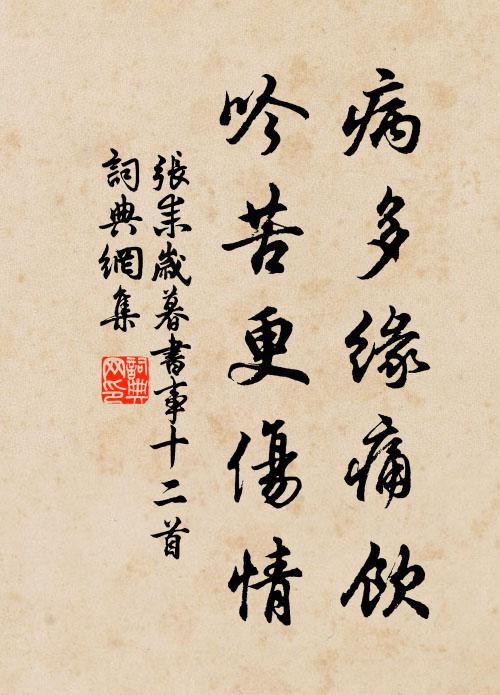 病多緣痛飲
吟苦更傷情
張耒歲暮書事十二首
詞典網集
詞典网印